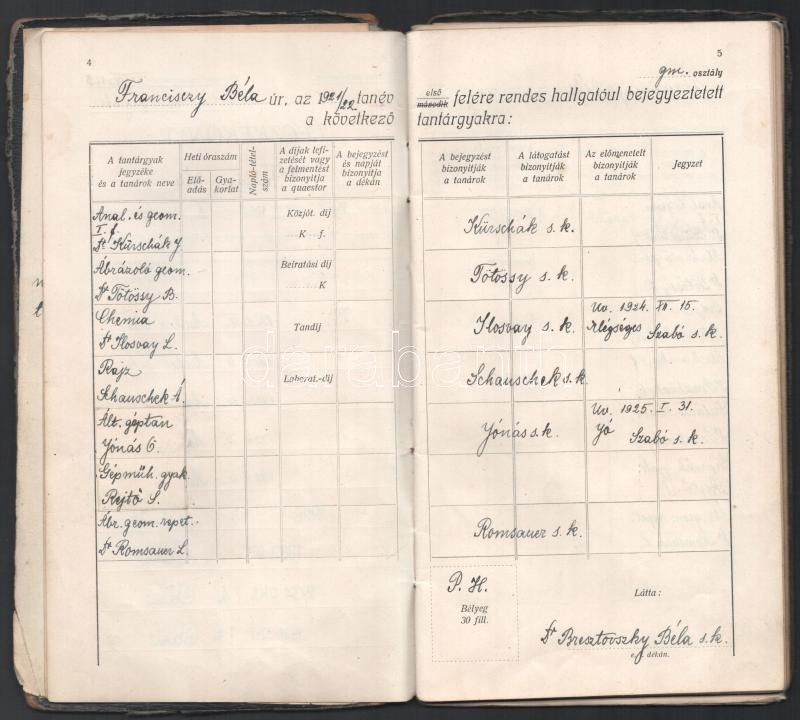 4
Franciszy Béla úr, az 1921/22 tanév
a következő
A tantárgyak jegyzéke és a tanárok neve
Heti óraszám
Előadás
Gyakorlat
Napló-tételszám
A díjak lefizetését vagy a felmentést bizonyítja a quaestor
A bejegyzést és napját bizonyítja a dékán
Anal. és geom.
I. f.
Dr Kürschák J.
Ábrázoló geom.
Dr Tötössy B.
Chemia
Dr Ilosvay L.
Rajz
Schauschek Á.
Ált. géptan
Jónás Ö.
Gépműh. gyak.
Rejtő S.
Ábr. geom. repet.
Dr Romsauer L.
Közjót. díj
K f.
Beíratási díj
K
Tandíj
Laborat.-díj
5
gm. osztály
első
második felére rendes hallgatóul bejegyeztetett
tantárgyakra:
A bejegyzést bizonyítják a tanárok
A látogatást bizonyítják a tanárok
Az előmenetelt bizonyítják a tanárok
Jegyzet
Kürschák s. k.
Tötössy s. k.
Ilosvay s. k.
Uv. 1924. XII. 15.
elégséges Szabó s. k.
Schauschek s. k.
Jónás s. k.
Uv. 1925. I. 31.
jó Szabó s. k.
Romsauer s. k.
P. H.
Bélyeg
30 fill.
Látta:
Dr Bresztovszky Béla s. k.
e. dékán.
darabanth